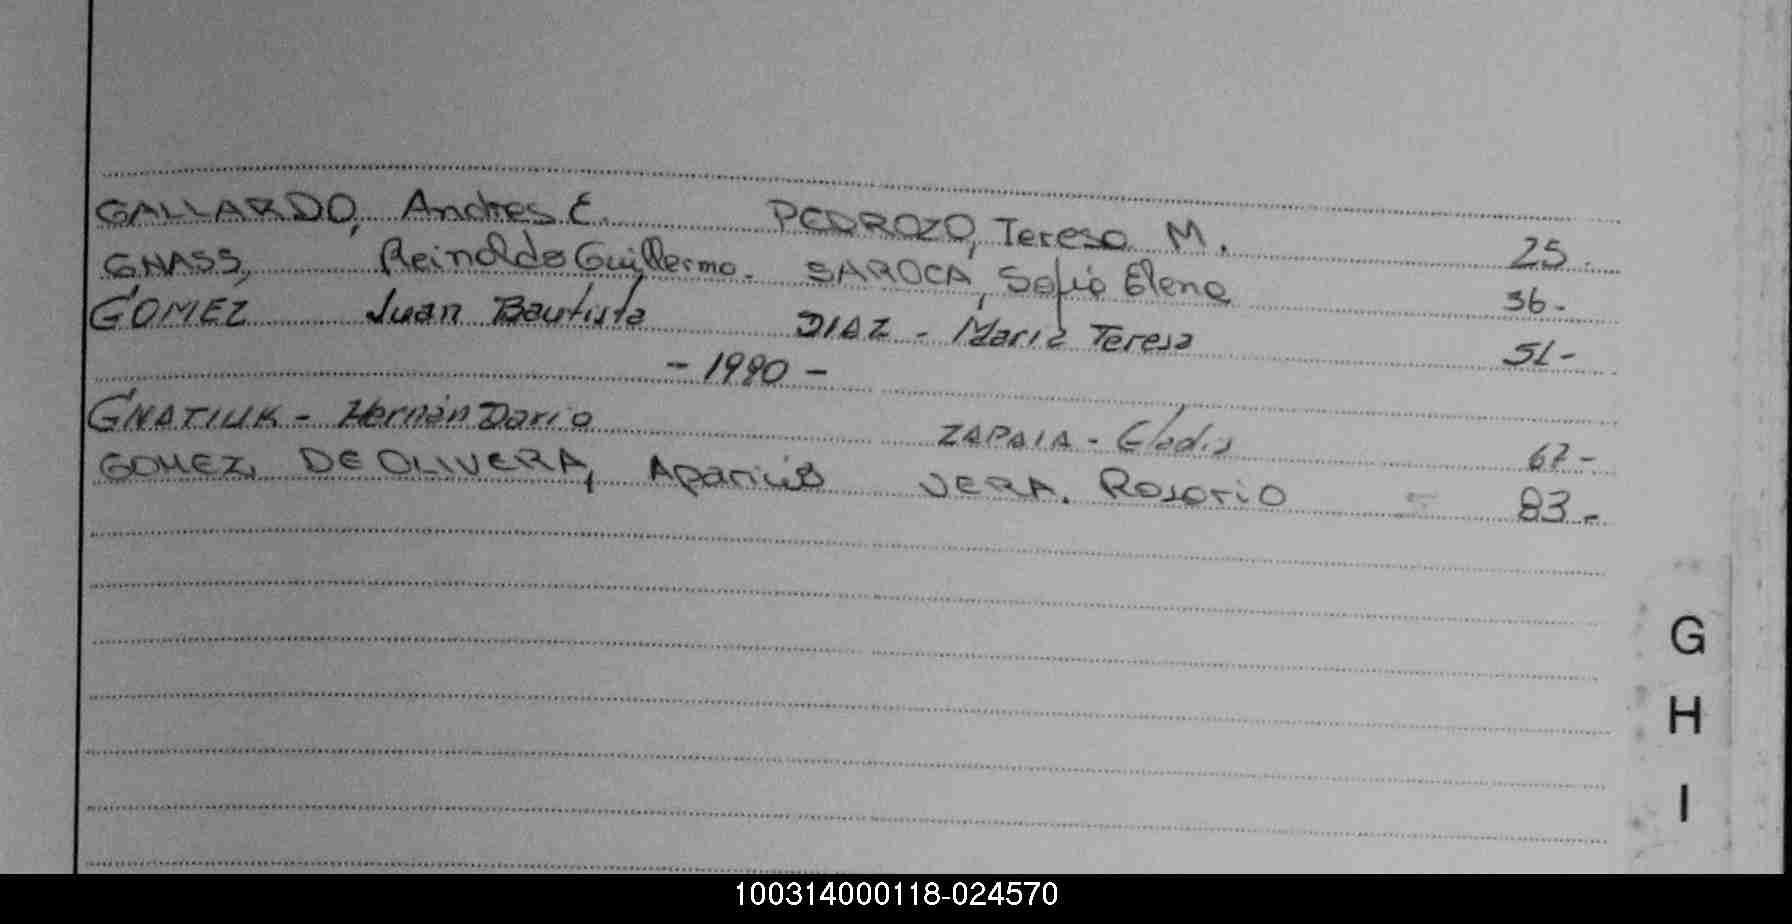 GALLARDO, Andres E. PEDROZO, Teresa M. 25.
GNASS, Reinaldo Guillermo. SAROCA, Sofia Elena 36-
GOMEZ Juan Bautista DIAZ - Maria Teresa 51-
- 1990 -
GNATIUK - Hernán Dario ZAPAIA - Gladis 67-
GOMEZ, DE OLIVERA, Aparicio VERA. Rosario = 83-
G
H
I
100314000118-024570